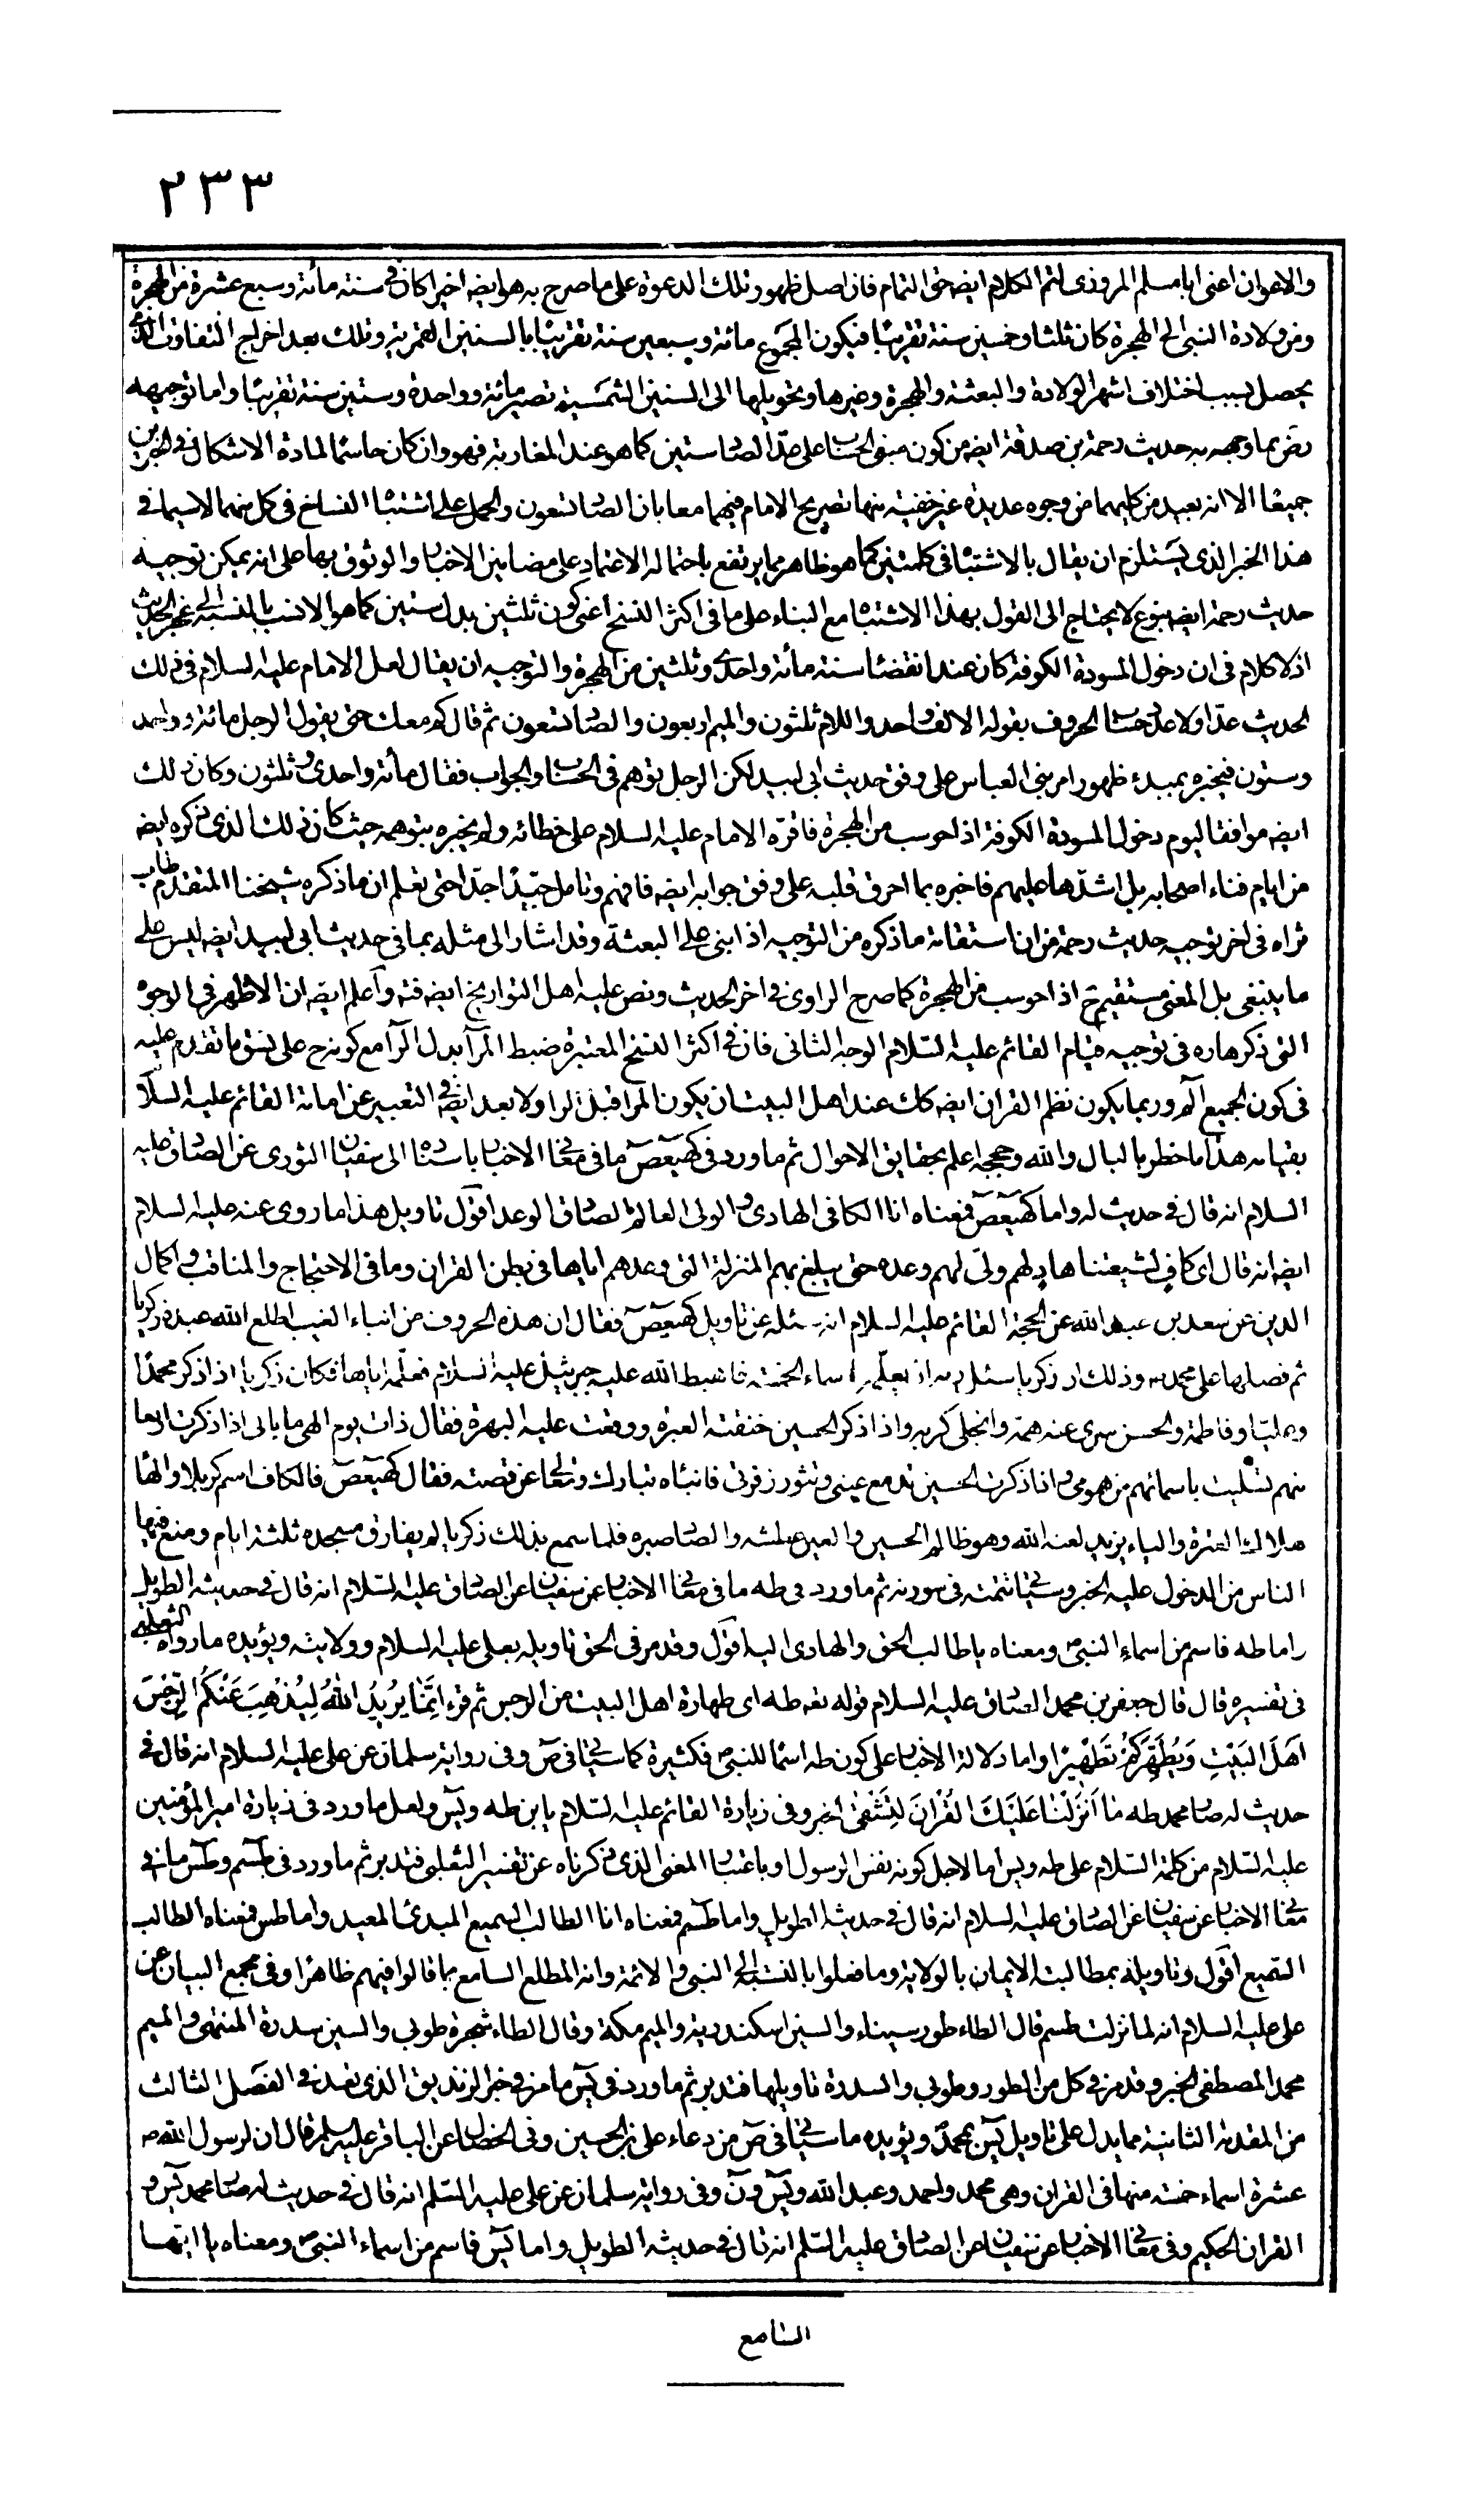 ٢٣٣
والاعوان اعنى ابا مسلم المروزى لتم الكلام ايضه حق التمام فان اصل ظهور تلك الدعوة على ما صرح به هو ايضه اخيرا كان فى سنة مأئة وسبع عشرة من الهجرة
ومن ولادة النبى الى الهجرة كان ثلثا وخمسين سنة تقريبًا فيكون المجموع مائة وسبعين سنة تقريبًا بالسنين القمرية وتلك بعد اخراج التفاوت الذى
يحصل بسبب اختلاف اشهر الولادة والبعثة والهجرة وغيرها وتحويلها الى السنين الشمسية تصير مائة وواحدة وستين سنة تقريبًا واما توجيهه
رض بما وجه به حديث رحمة بن صدقة ايضه من كون مبنى الحساب على عد الصاد ستين كما هو عند المغاربة فهو وان كان حاسمًا لمادة الاشكال فى الخبرين
جميعًا الا انه بعيد من كليهما من وجوه عديدة غير خفية منها تصريح الامام فيهما معا بان الصاد تسعون والحمل على اشتباه النساخ فى كل منهما لاسيما فى
هذا الخبر الذى يستلزم ان يقال بالاشتباه فى كلمتين كما هو ظاهر مما يرتفع باحتماله الاعتماد على مضامين الاخبار والوثوق بها على انه يمكن توجيه
حديث رحمة ايضه بنوع لا يحتاج الى القول بهذا الاشتباه مع البناء على ما فى اكثر النسخ اعنى كون ثلثين بدل ستين كما هو الانسب بالنسبة الى الحديث
اذ لا كلام فى ان دخول المسودة الكوفة كان عند انقضاء سنة مأئة واحدى وثلثين من الهجرة والتوجيه ان يقال لعل الامام عليه السلام فى ذلك
الحديث عدّ اولا على حساب الحروف بقوله الالف واحد واللام ثلثون والميم اربعون والصاد تسعون ثم قال كم معك حتى يقول الرجل مائة وواحد
وستون فيخبره بمبدء ظهور امر بنى العباس على وفق حديث ابى لبيد لكن الرجل توهم فى الحساب والجواب فقال مأئة واحدى وثلثون وكان ذلك
ايضه موافقا ليوم دخول المسودة الكوفة اذا حوسب من الهجرة فاقره الامام عليه السلام على خطائه ولم يخبره بتوهمه حيث كان ذلك الذى ذكره ايضه
من ايام فناء اصحابه بل اشدها عليهم فاخبره بما احرق قلبه على وفق جوابه ايضه فافهم وتامل جيّدًا جدّا حتى تعلم ان ما ذكره شيخنا المتقدم طاب
ثراه فى اخر توجيه حديث رحمة من ان استقامة ما ذكره من التوجيه اذا بنى على البعثة وقد اشار الى مثله بما فى حديث ابى لبيد ايضه ليس على
ما ينبغى بل المعنى مستقيم ح اذا حوسب من الهجرة كما صرح الراوى فى اخر الحديث ونص عليه اهل التواريخ ايضه فته واعلم ايضه ان الاظهر فى الوجوه
التى ذكرها ره فى توجيه قيام القائم عليه السلام الوجه الثانى فان فى اكثر النسخ المعتبرة ضبط المرآ بدل الرآ مع كونه ح على نسق ما تقدم عليه
فى كون الجميع الم وربما يكون نظم القران ايضه كك عند اهل البيت ان يكون المرا قبل الرا ولا بعد ايضه فى التعبير عن امامة القائم عليه السلام
بقيامه هذا ما خطر بالبال والله وحججه اعلم بحقايق الاحوال ثم ما ورد فى كهيعص ما فى معانى الاخبار باسناده الى سفيان الثورى عن الصادق عليه
السلام انه قال فى حديث له واما كهيعص فمعناه انا الكافى الهادى الولى العالم الصادق الوعد اقول تاويل هذا ما روى عنه عليه السلام
ايضه انه قال اى كاف لشيعتنا هاد لهم ولىّ لهم وعده حق يبلغ بهم المنزلة التى وعدهم اياها فى بطن القران وما فى الاحتجاج والمناقب واكمال
الدين عن سعد بن عبد الله عن الحجة القائم عليه السلام انه سئله عن تاويل كهيعص فقال ان هذه الحروف من انباء الغيب اطلع الله عبده زكريا
ثم فصلها على محمد ص وذلك ان زكريا سئل ربه ان يعلّمه اسماء الخمسة فاهبط الله عليه جبرئيل عليه السلام فعلمه اياها فكان زكريا اذا ذكر محمدًا
وعليّا وفاطمة والحسن سرى عنه همّه وانجلى كربه واذا ذكر الحسين خنقته العبرة ووقعت عليه البهرة فقال ذات يوم الهى ما بالى اذا ذكرت اربعا
منهم تسليت باسمائهم من همومى واذا ذكرت الحسين تدمع عينى وتثور زفرتى فانبئاه تبارك وتعالى عن قصته فقال كهيعص فالكاف اسم كربلا والهاء
هلاك العترة والياء يزيد لعنه الله وهو ظالم الحسين والعين عطشه والصاد صبره فلما سمع بذلك زكريا لم يفارق مسجده ثلثة ايام ومنع فيها
الناس من الدخول عليه الخبر وسياتى تتمته فى سورته ثم ما ورد فى طه ما فى معانى الاخبار عن سفيان عن الصادق عليه السلام انه قال فى حديثه الطويل
واما طه فاسم من اسماء النبى ص ومعناه يا طالب الحق والهادى اليه اقول وقد مر فى الحق تاويله بعلى عليه السلام وولايته ويؤيده ما رواه الثعلبى
فى تفسيره قال قال جعفر بن محمد الصادق عليه السلام قوله تعه طه اى طهارة اهل البيت من الرجس ثم قرء اِنَّمَا يُرِيدُ اللهُ لِيُذْهِبَ عَنْكُمُ الرِّجْسَ
اَهْلَ الْبَيْتِ وَيُطَهِّرَكُمْ تَطْهِيْرًا واما دلالة الاخبار على كون طه اسمًا للنبى ص فكثيرة كما سياتى فى ص وفى رواية سلمان عن على عليه السلام انه قال فى
حديث له صاد محمد طه مَا اَنْزَلْنَا عَلَيْكَ الْقُرْانَ لِتَشْقٰى الخبر وفى زيارة القائم عليه السلام يابن طه ويس ولعل ما ورد فى زيارة امير المؤمنين
عليه السلام من كلمة السلام على طه ويس اما لاجل كونه نفس الرسول او باعتبار المعنى الذى ذكرناه عن تفسير الثعلبى فتدبر ثم ما ورد فى طسم وطس ما فى
معانى الاخبار عن سفيان عن الصادق عليه السلام انه قال فى حديثه الطويل واما طسم فمعناه انا الطالب السميع المبدئ المعيد واما طس فمعناه الطالب
السميع اقول وتاويله بمطالبة الايمان بالولاية وما فعلوا بالنسبة الى النبى والائمة وانه المطلع السامع بما قالوا فيهم ظاهرًا وفى مجمع البيان عن
على عليه السلام انه لما نزلت طسم قال الطاء طور سيناء والسين اسكندرية والميم مكة وقال الطاء شجرة طوبى والسين سدرة المنتهى والميم
محمد المصطفى الخبر وقد مر فى كل من الطور وطوبى والسدرة تاويلها فتدبر ثم ما ورد فى يس ما مر فى خبر الزنديق الذى تقدم فى الفصل الثالث
من المقدمة الثانية مما يدل على تاويل يس بمحمد ويؤيده ما سياتى فى ص من دعاء على بن الحسين وفى الخصال عن الباقر عليه السلم قال ان لرسول الله ص
عشرة اسماء خمسة منها فى القران وهى محمد واحمد وعبد الله ويس ون وفى رواية سلمان عن على عليه السلم انه قال فى حديث له صاد محمد يس و
القران الحكيم وفى معانى الاخبار عن سفيان عن الصادق عليه السلم انه قال فى حديثه الطويل واما يس فاسم من اسماء النبى ص ومعناه يا ايها
السامع